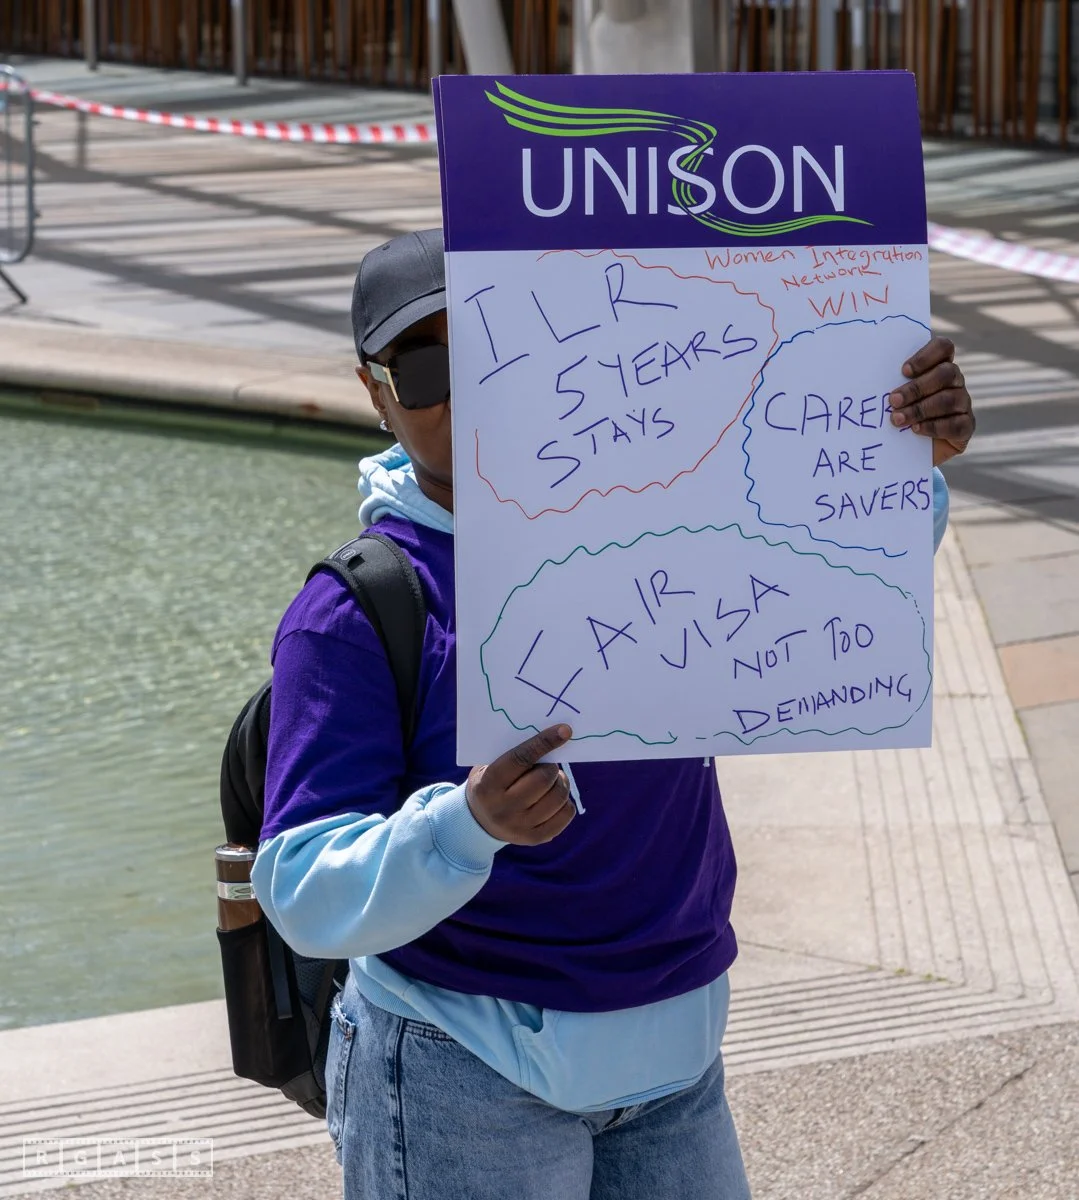 UNISON
Women Integration
Network
WIN
ILR
5 YEARS
STAYS
CARERS
ARE
SAVERS
FAIR
VISA
NOT TOO
DEMANDING
RGASS